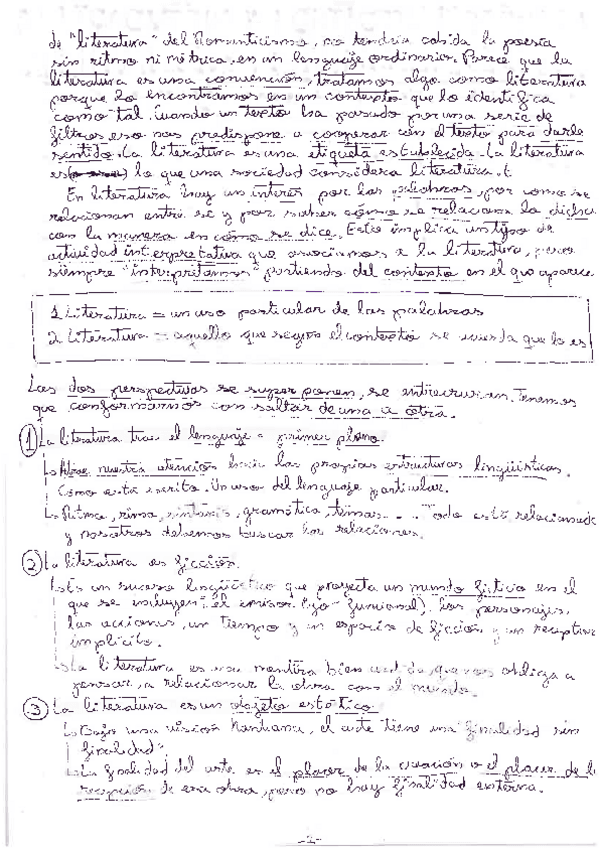 de "literatura" del Romanticismo, no tendría cabida la poesía
sin ritmo ni métrica, en un lenguaje ordinario. Parece que la
literatura es una convención, tratamos algo como literatura
porque lo encontramos en un contexto que lo identifica
como tal. Cuando un texto ha pasado por una serie de
filtros eso nos predispone a cooperar con el texto para darle
sentido. La literatura es una etiqueta establecida. La literatura
es lo que una sociedad considera literatura.
En literatura hay un interés por las palabras, por como se
relacionan entre sí y por saber cómo se relaciona lo dicho
con la manera en cómo se dice. Esto implica un tipo de
actividad interpretativa que asociamos a la literatura, pero
siempre "interpretamos" partiendo del contexto en el que aparece
1 Literatura = un uso particular de las palabras
2 Literatura = aquello que según el contexto se acuerda que lo es
Las dos perspectivas se superponen, se entrecruzan. Tenemos
que conformarnos con saltar de una a otra.
1 La literatura trae el lenguaje a primer plano.
nuestra atención hacia las propias estructuras lingüísticas.
Como está escrito. Un uso del lenguaje particular.
Ritmo, rima, sintaxis, gramática, temas... Todo está relacionado
y nosotros debemos buscar las relaciones.
2 La literatura es ficción.
Es un suceso lingüístico que proyecta un mundo ficticio en el
que se incluyen: el emisor (yo funcional), los personajes,
las acciones, un tiempo y un espacio de ficción y un receptor
implícito.
La literatura es una mentira bien que nos obliga a
pensar, a relacionar la obra con el mundo.
3 La literatura es un objeto estético
Bajo una visión Kantiana, el arte tiene una "finalidad sin
finalidad".
La finalidad del arte es el placer de la creación o el placer de la
recepción de esa obra, pero no hay finalidad externa.
-2-